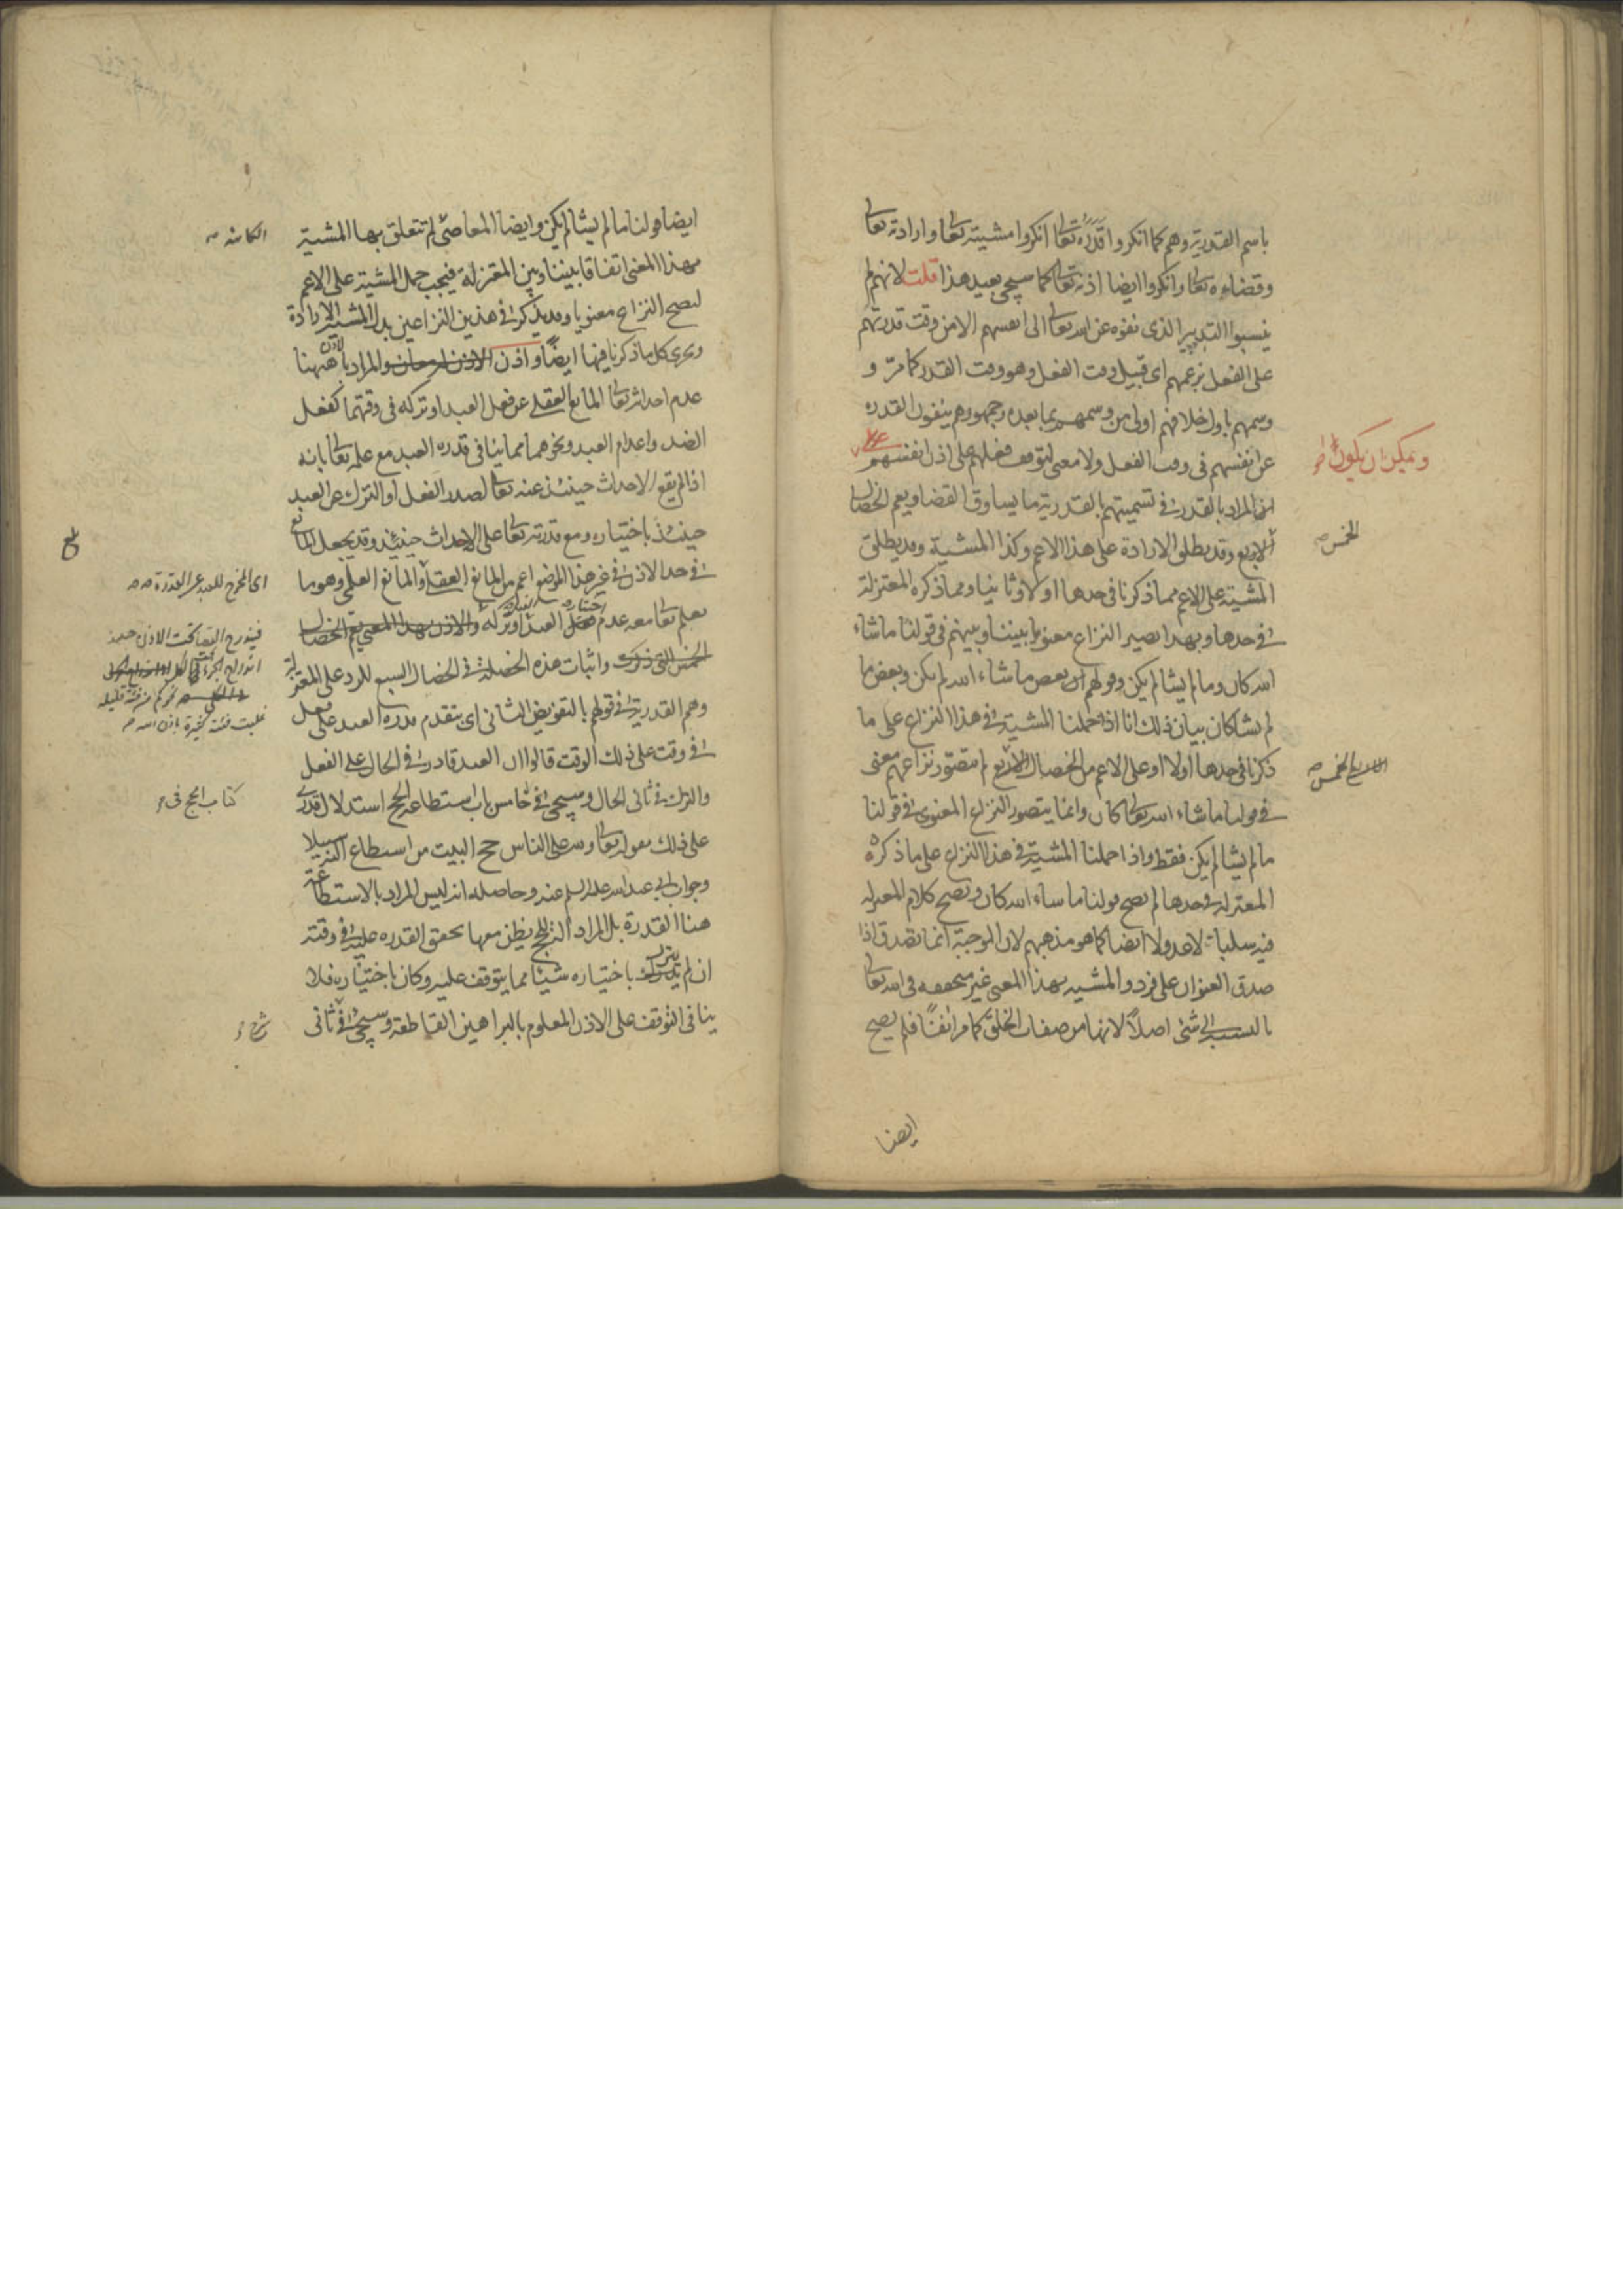 باسم القدرية وهم كما انكروا قدره تعالى انكروا مشيته تعالى وارادته تعالى
وقضاءه تعالى وانكروا ايضا اذنه تعالى كما سيجئ بعيد هذا قلت لانهم لم
ينسبوا التدبير الذى نفوه عن الله تعالى الى انفسهم الا من وقت قدرتهم
على الفعل بزعمهم اى قبيل وقت الفعل وهو وقت القدر كما مرّ و
وسمهم باول خلافهم اولى من وسمهم بما بعده وجمهورهم ينفون القدره
عن انفسهم فى وقت الفعل ولا معنى لتوقف فعلهم على اذن انفسهم
ويمكن ان يكون
المراد بالقدر فى تسميتهم بالقدرية ما يساوق القضا ويعم الخصال
الاربع وقد يطلق الارادة على هذا الاعم وكذا المشية وقد يطلق
الخمس
المشية على الاعم مما ذكرنا فى حدها اولا وثانيا ومما ذكره المعتزلة
فى حدها وبهذا يصير النزاع معنويا بيننا وبينهم فى قولنا ما شاء
الله كان وما لم يشا لم يكن وقولهم ان بعض ما شاء الله لم يكن وبعض ما
لم يشا كان بيان ذلك انا اذا حملنا المشية فى هذا النزاع على ما
ذكرنا فى حدها اولا او على الاعم من الخصال الاربع لم يتصوّر نزاعهم معنى
الخمس
فى قولنا ما شاء الله تعالى كان وانما يتصور النزاع المعنوى فى قولنا
ما لم يشا لم يكن فقط واذا حملنا المشية فى هذا النزاع على ما ذكره
المعتزله فى حدها لم يصح قولنا ما شاء الله كان ويصح كلام المعتزله
فيه سلبا لا عدولا ايضا كما هو مذهبهم لان الموجبة انما تصدق اذا
صدق العنوان على فرد والمشيه بهذا المعنى غير متحققه فى الله تعالى
بالنسبة الى شئ اصلاً لانها من صفات الخلق كما مر انفًا فلم يصح
ايضا
ايضا قولنا ما لم يشا لم يكن وايضا المعاصى لم تتعلق بها المشية
الكائنه
بهذا المعنى اتفاقا بيننا وبين المعتزلة فيجب حمل المشية على الاعم
ليصح النزاع معنويا وقد يذكر فى هذين النزاعين بدل المشية الارادة
ويجرى كل ما ذكرنا فيها ايضًا واذن والمراد بالاذن ههنا
عدم احداثه تعالى المانع العقلى عن فعل العبد او تركه فى وقتهما كفعل
الضد واعدام العبد ونحوهما مما ينافى قدره العبد مع علمه تعالى بانه
اذا لم يقع الاحداث حينئذ عنه تعالى لصدر الفعل او الترك عن العبد
حينئذ باختياره ومع قدرته تعالى على الاحداث حينئذ وقد يجعل المانع
فى حد الاذن فى غير هذا الموضع اعم من المانع العقلى والمانع العلمى وهو ما
اى المخرج للعبد عن القدرة
يعلم تعالى معه عدم اختيار العبد او تركه والاذن بهذا المعنى يعم الخصال
فيندرج القضا تحت الاذن حينئذ
الخمس التى ذكرت واثبات هذه الخصلة فى الخصال السبع للرد على المعتزلة
نحو كم من فئة قليله
غلبت فئة كثيرة باذن الله
وهم القدرية فى قولهم بالتفويض الثانى اى بتقدم قدره العبد على فعل
فى وقت على ذلك الوقت قالوا ان العبد قادر فى الحال على الفعل
والترك فى ثانى الحال وسيجئ فى خامس باب استطاعه الحج استدلال القدرى
كتاب الحج فى
على ذلك بقوله تعالى ولله على الناس حج البيت من استطاع اليه سبيلا
وجواب ابى عبد الله عليه السلم عنه وحاصله انه ليس المراد بالاستطاعة
هنا القدرة بل المراد التى يظن معها تحقق القدره عليه فى وقته
ان لم يترك باختياره شيئا مما يتوقف عليه وكان باختياره فلا
ينافى التوقف على الاذن المعلوم بالبراهين القاطعة وسيجئ فى ثانى
شرح